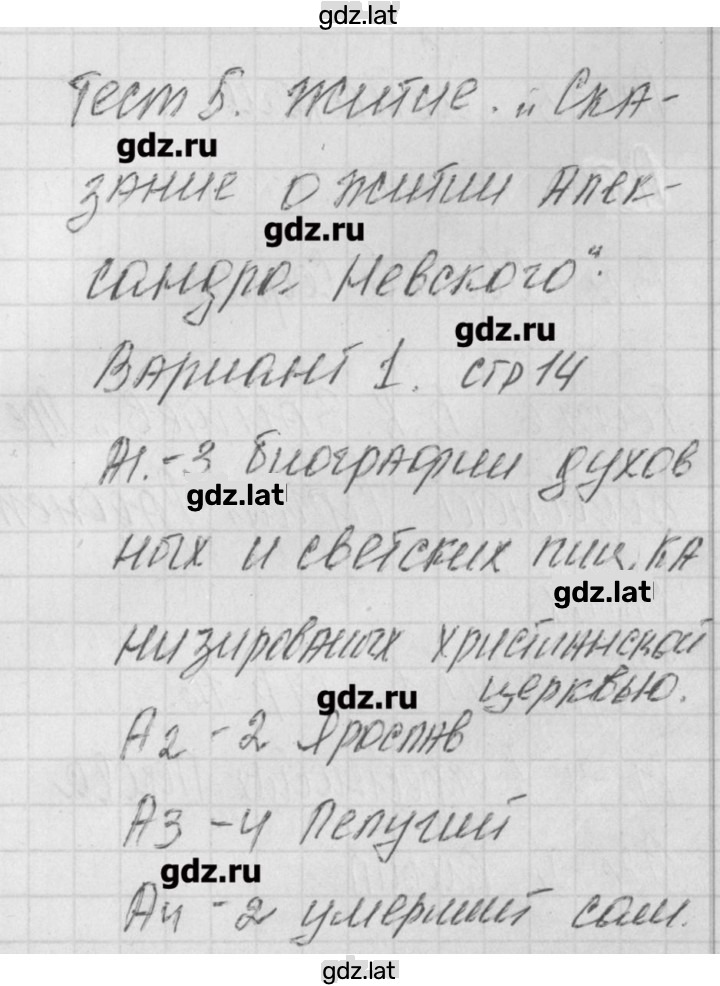 gdz.lat
Тест 5. Житие. „Ска-
gdz.ru
зание о житии Алек-
gdz.ru
сандра Невского“.
gdz.ru
Вариант 1. стр 14
А1.-3 биографии духов
gdz.lat
ных и светских лиц, ка
gdz.lat
низированых христианской
церквью.
gdz.ru
А2 -2 Ярослав
А3 -4 Пелугий
gdz.ru
А4 -2 умерший сам.
gdz.lat